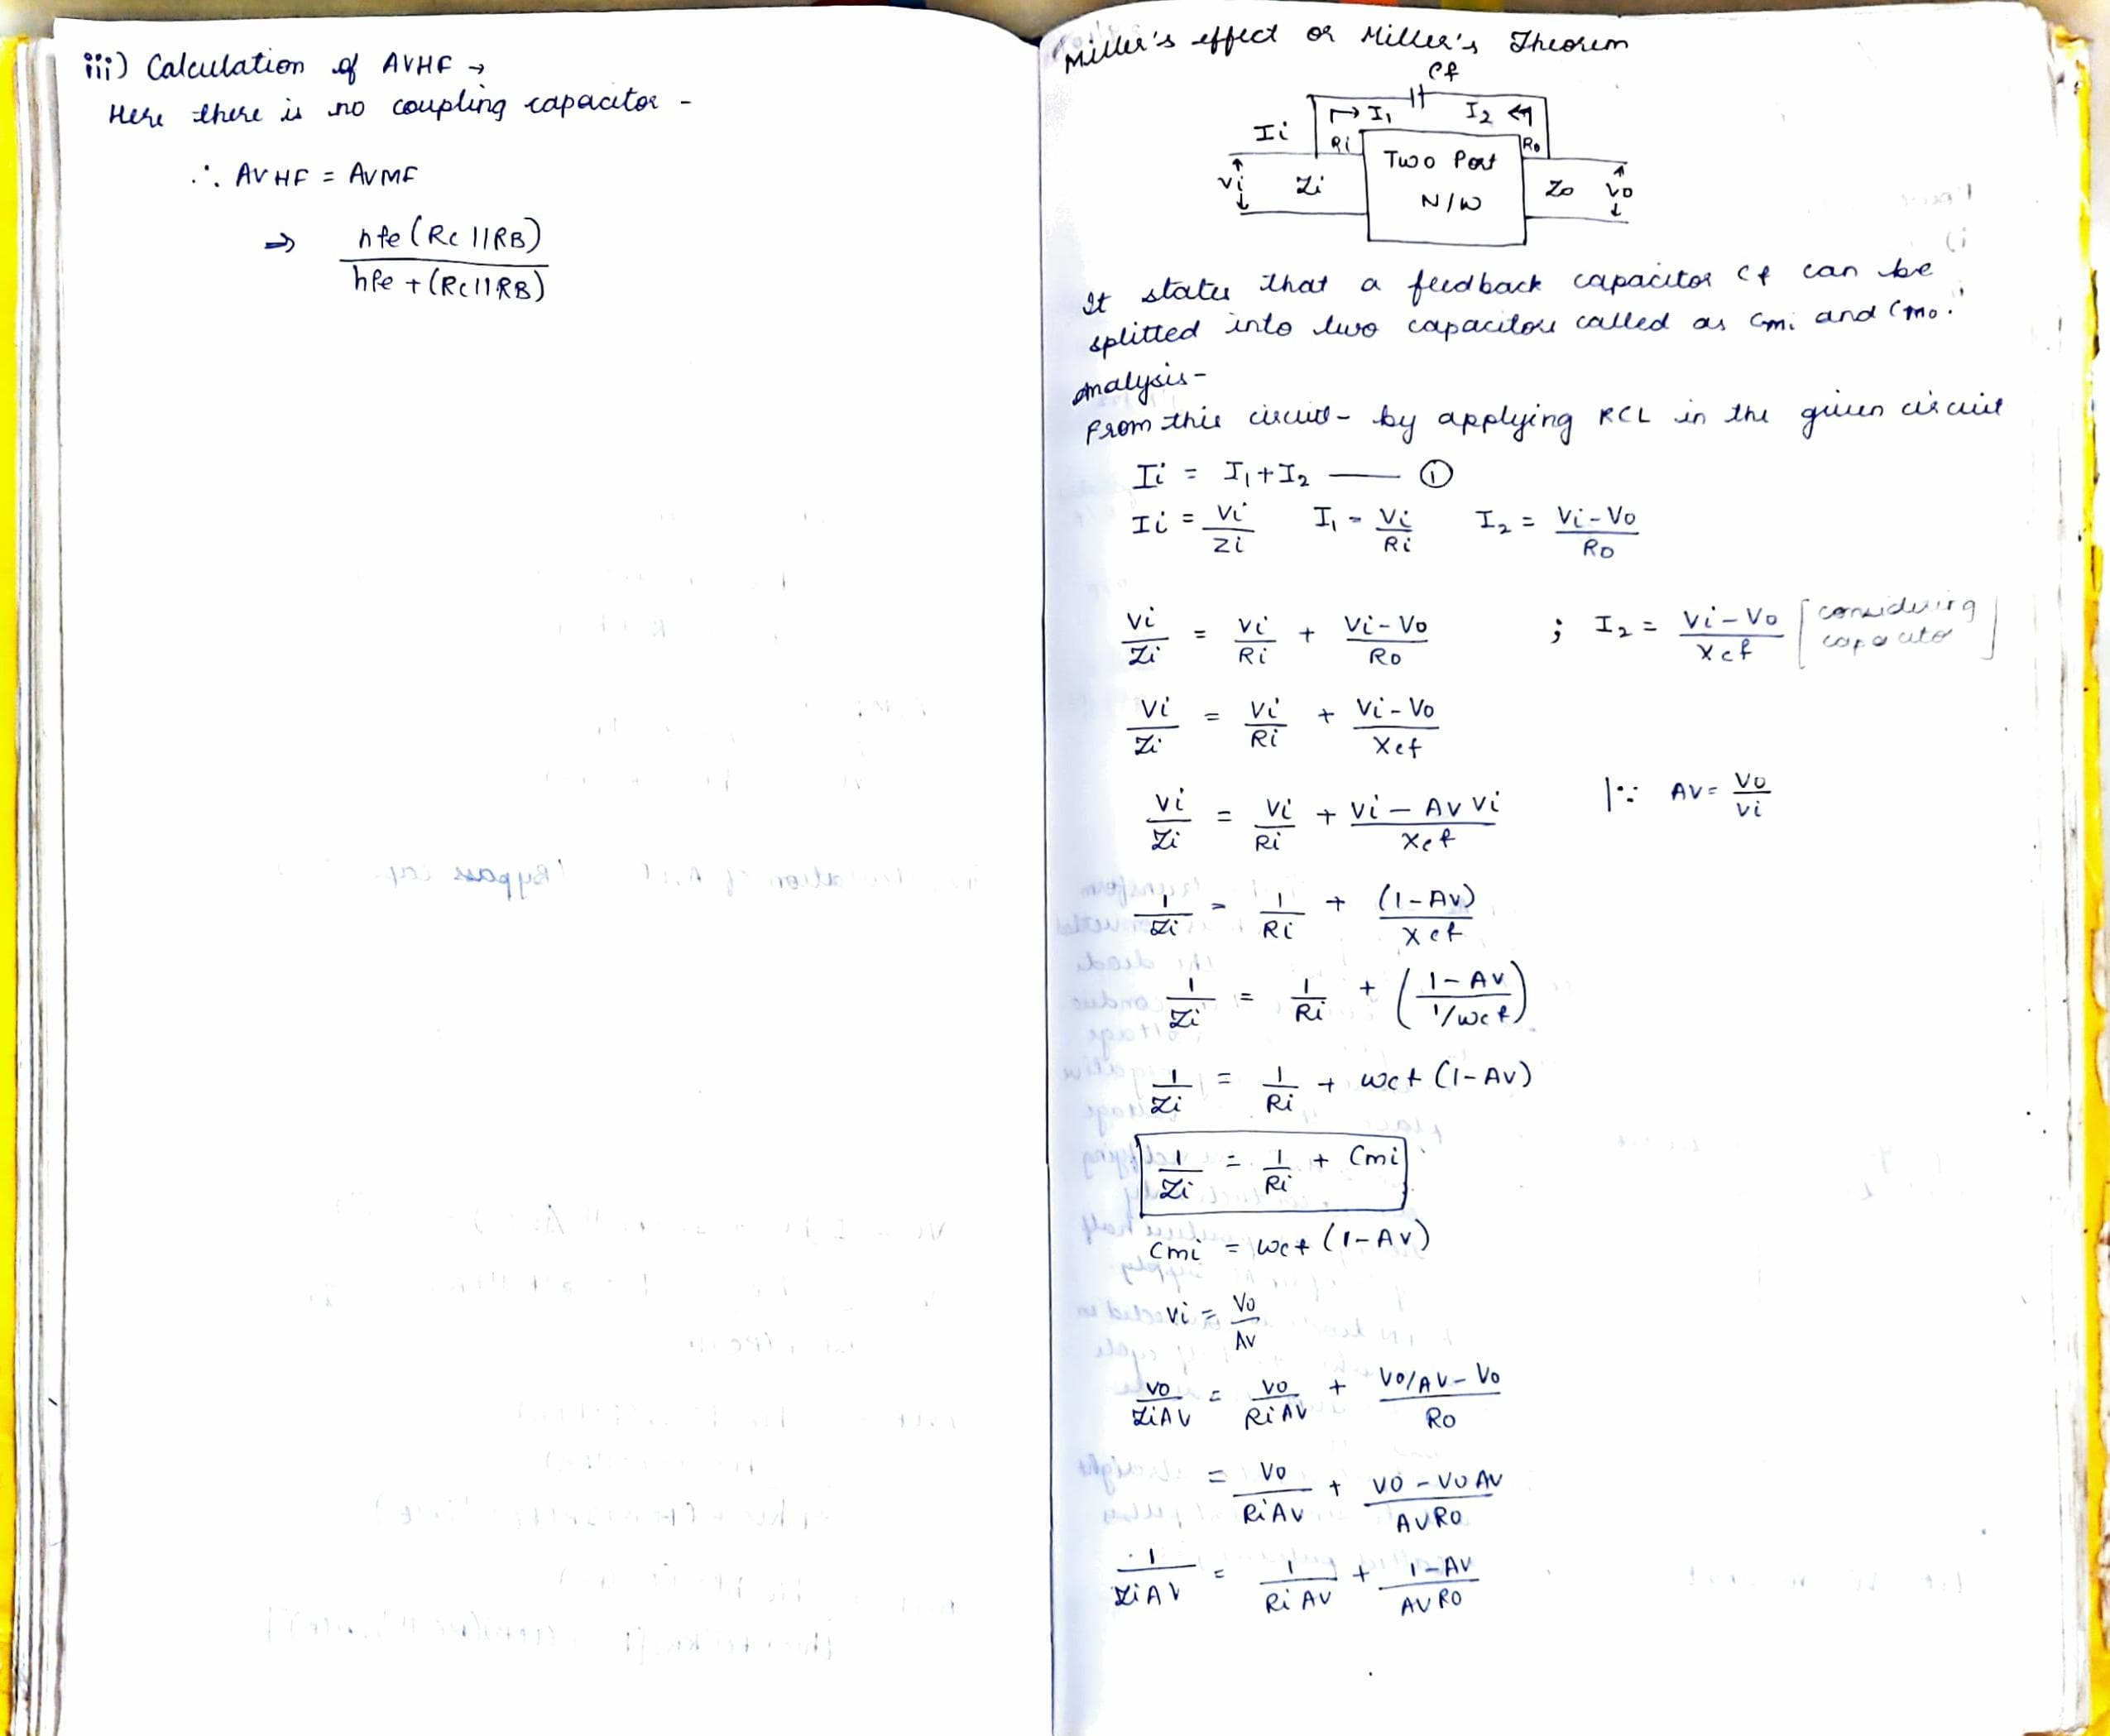 iii) Calculation of AVHF →
Here there is no coupling capacitor -
∴ AVHF = AVMF
⇒ hfe (Rc || RB) / hfe + (Rc || RB)
Miller's effect or Miller's Theorem
Cf
I1 I2
Ii Ri Ro
Two Port
Vi Zi Zo Vo
N/W
It states that a feedback capacitor Cf can be
splitted into two capacitors called as Cmi and Cmo.
Analysis -
From this circuit - by applying KCL in the given circuit
Ii = I1 + I2 —— ①
Ii = Vi / Zi I1 = Vi / Ri I2 = Vi - Vo / Ro
Vi / Zi = Vi / Ri + Vi - Vo / Ro ; I2 = Vi - Vo / Xcf [considering
capacitor]
Vi / Zi = Vi / Ri + Vi - Vo / Xcf
Vi / Zi = Vi / Ri + Vi - AV Vi / Xcf | ∵ AV = Vo / Vi
1 / Zi = 1 / Ri + (1 - AV) / Xcf
1 / Zi = 1 / Ri + (1 - AV / 1/wcf)
1 / Zi = 1 / Ri + wcf (1 - AV)
1 / Zi = 1 / Ri + Cmi
Cmi = wcf (1 - AV)
Vi = Vo / AV
Vo / ZiAV = Vo / RiAV + Vo/AV - Vo / Ro
= Vo / RiAV + Vo - VoAV / AVRo
1 / ZiAV = 1 / RiAV + 1 - AV / AVRo